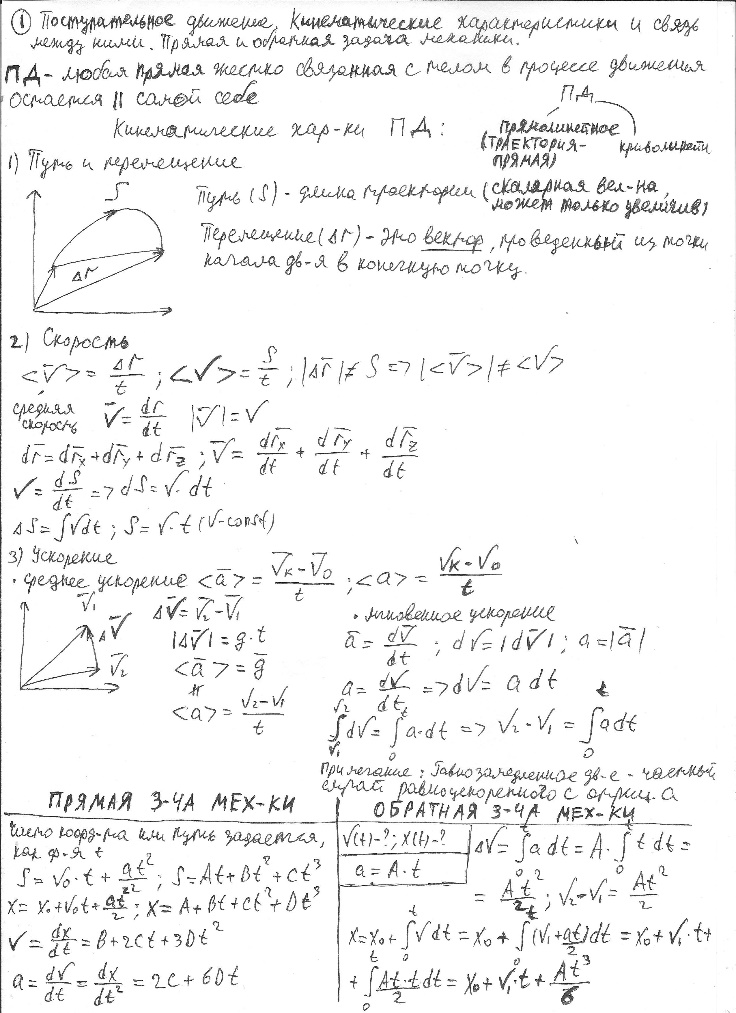 ① Поступательное движение, Кинематические характеристики и связь
между ними. Прямая и обратная задача механики.
ПД - любая прямая жестко связанная с телом в процессе движения
остается || самой себе
ПД
Кинематические хар-ки ПД:
прямолинейное
(ТРАЕКТОРИЯ-
ПРЯМАЯ)
криволинейн
1) Путь и перемещение
S
Δr
Путь (S) - длина траектории (скалярная вел-на,
может только увеличив)
Перемещение (Δr̅) - это вектор, проведенный из точки
начала дв-я в конечную точку.
2) Скорость
<V̅> = Δr̅/t ; <V> = S/t ; |Δr̅| ≠ S => |<V̅>| ≠ <V>
средняя
скорость
V̅ = dr̅/dt |V̅| = V
dr̅ = dr̅x + dr̅y + dr̅z ; V̅ = dr̅x/dt + dr̅y/dt + dr̅z/dt
V = dS/dt => dS = V·dt
ΔS = ∫Vdt ; S = V·t (V-const)
3) Ускорение
· среднее ускорение <a̅> = (V̅к - V̅0)/t ; <a> = (Vк - V0)/t
V̅1
ΔV̅
V̅2
ΔV̅ = V̅2 - V̅1
|ΔV̅| = g·t
<a̅> = g̅
≠
<a> = (V2 - V1)/t
· мгновенное ускорение
a̅ = dV̅/dt ; dV = |dV̅| ; a = |a̅|
a = dV/dt => dV = a dt
∫_{V1}^{V2} dV = ∫_0^t a·dt => V2 - V1 = ∫_0^t a dt
Примечание: Равнозамедленное дв-е - частный
случай равноускоренного с отриц. a
ПРЯМАЯ З-ЧА МЕХ-КИ
Чисто коорд-та или путь задается,
как ф-я t
S = V0·t + at²/2 ; S = At + Bt² + Ct³
X = X0 + V0t + at²/2 ; X = A + Bt + Ct² + Dt³
V = dx/dt = B + 2Ct + 3Dt²
a = dV/dt = dx/dt² = 2C + 6Dt
ОБРАТНАЯ З-ЧА МЕХ-КИ
V(t)-? ; X(t)-?
a = A·t
ΔV = ∫_0^t a dt = A·∫_0^t t dt =
= At²/2 ; V2 - V1 = At²/2
X = X0 + ∫_0^t V dt = X0 + ∫_0^t (V1 + at/2)dt = X0 + V1·t +
+ ∫_0^t At·t/2 dt = X0 + V1·t + At³/6